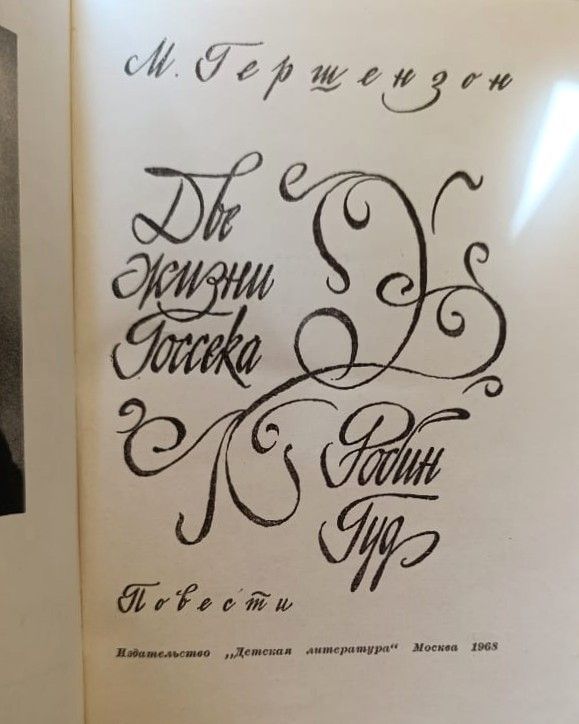 М. Гершензон
Две
жизни
Госсека
Робин
Гуд
Повести
Издательство „Детская литература“ Москва 1968